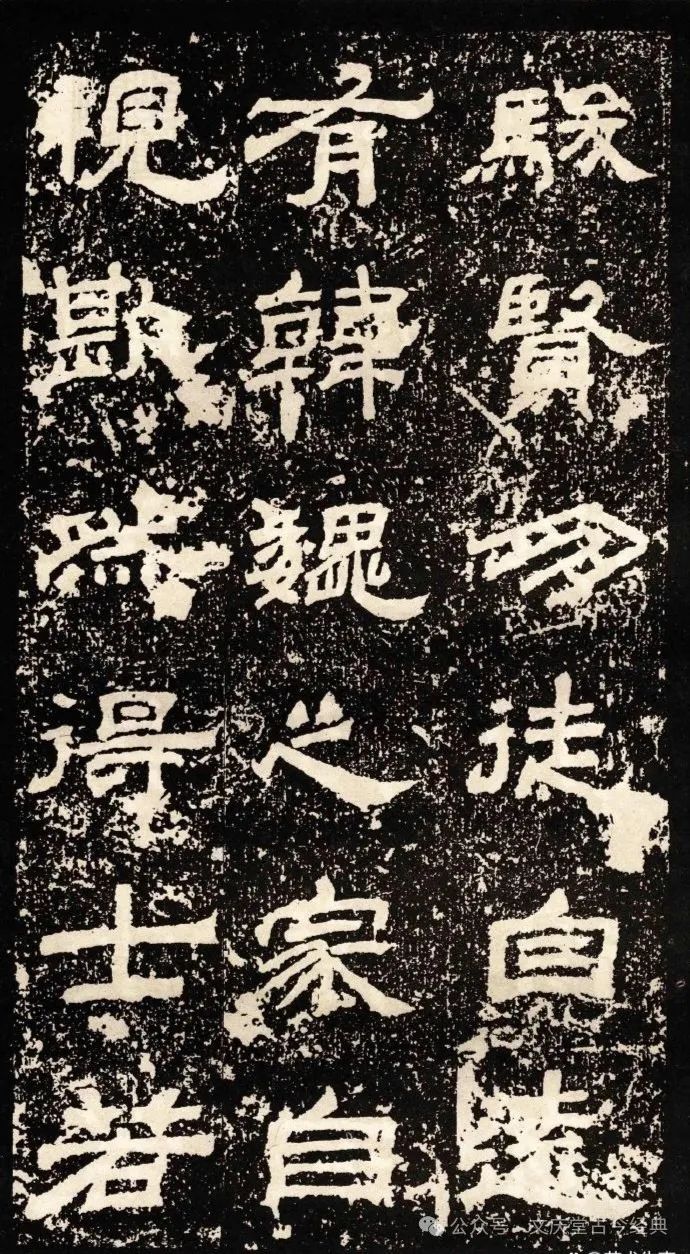 賢朋徒自遠
有韓魏之家自
視然得士若
公众号·文庆堂古今经典